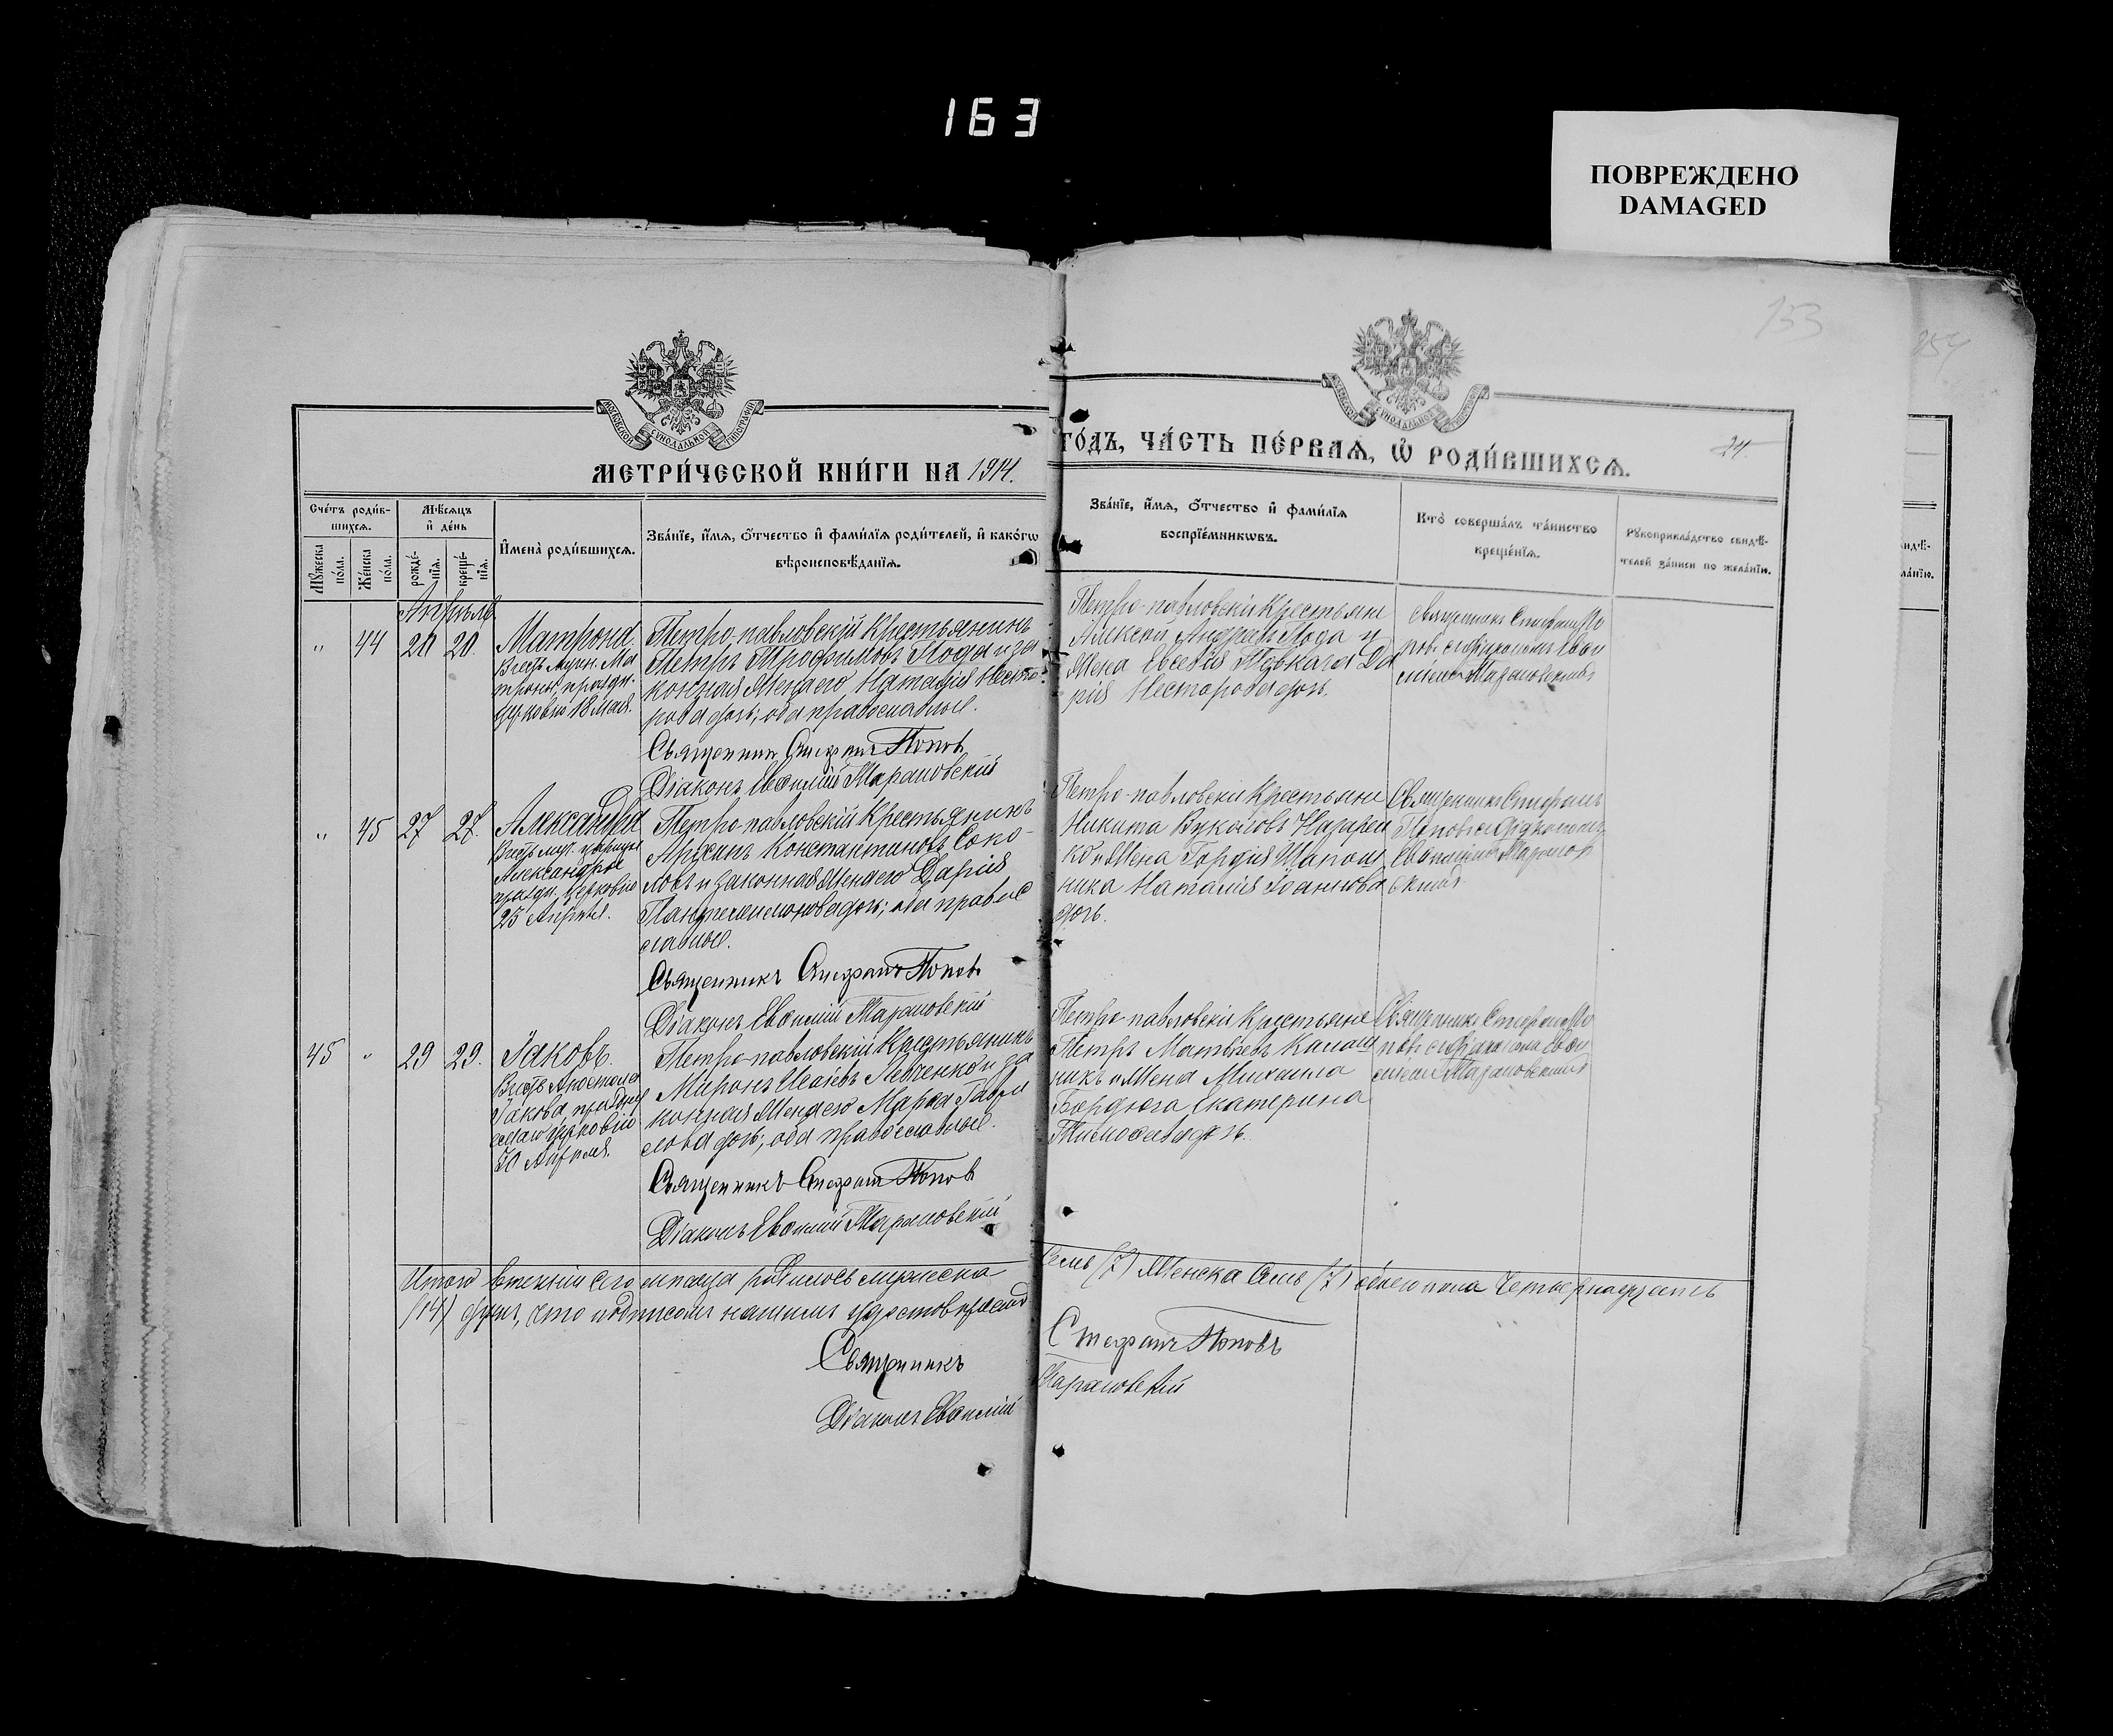 163
ПОВРЕЖДЕНО
DAMAGED
153
254
24
МОСКОВСКОЙ СѴНОДАЛЬНОЙ ТИПОГРАФІИ
МОСКОВСКОЙ СѴНОДАЛЬНОЙ ТИПОГРАФІИ
МЕТРИ́ЧЕСКОЙ КНИ́ГИ НА 1914.
ГО́ДЪ, ЧА́СТЬ ПЕ́РВАѦ, Ѡ҆ РОДИ́ВШИХСѦ.
Сче́тъ роди́в-
шихсѧ.
Мꙋ́жеска
по́ла.
Же́нска
по́ла.
Мѣ́сѧцъ
и҆ де́нь
рожде́-
нїѧ.
креще́-
нїѧ.
И҆мена̀ роди́вшихсѧ.
Зва́нїе, и҆́мѧ, ѻ҆́тчество и҆ фами́лїѧ роди́телей, и҆ како́гѡ
вѣроисповѣ́данїѧ.
Зва́нїе, и҆́мѧ, ѻ҆́тчество и҆ фами́лїѧ
воспрїе́мникѡвъ.
Кто̀ соверша́лъ та́инство
креще́нїѧ.
Рꙋкоприкла́дство свидѣ́-
телей за́писи по жела́нїю.
Апрѣль
„ 44 20 20. Матрона
Въ честь мучн. Ма
троны, праздн.
церковію 18 Мая.
Петро-павловскій крестьянинъ
Петръ Трофимовъ Лода и за
конная жена его Наталія Несто-
рова дочь; оба православные.
Священникъ Стефанъ Поповъ
Діаконъ Евѳимій Марановскій
Петро-павловскіи крестьяне
Алексѣй Андреевъ Лода и
жена Евсевія Да
рія Несторова дочь.
Священникъ Стефанъ По
повъ съ діакономъ Евѳи
міемъ Марановскимъ
„ 45 27 27. Александра
Въ честь муч. царицы
Александры
праздн. церковію
23 Апрѣля.
Петро-павловскій крестьянинъ
Константиновъ Соко-
ловъ и законная жена его Дарія
Пантелеимонова дочь; оба правос
лавные.
Священникъ Стефанъ Поповъ
Діаконъ Евѳимій Марановскій
Петро-павловскіи крестьяне
Никита Вуколовъ Назарен
ко и жена Гордія Шапош
ника Наталія Іоаннова
дочь.
Священникъ Стефанъ
Поповъ съ діакономъ
Евѳиміемъ Маранов
скимъ
45 „ 29 29. Іаковъ.
Въ честь Апостола
Іакова, празднуе
маго церковію
30 Апрѣля.
Петро-павловскій крестьянинъ
Миронъ Исаіевъ Левченко и за
конная жена его Марѳа Гаври
лова дочь; оба православные.
Священникъ Стефанъ Поповъ
Діаконъ Евѳимій Марановскій
Петро-павловскіи крестьяне
Петръ Матвѣевъ Калаш
никъ и жена Михаила
Бордюга Екатерина
дочь.
Священникъ Стефанъ По
повъ съ діакономъ Евѳи
міемъ Марановскимъ
Итого въ теченіи сего мѣсяца родилось мужеска
семь (7) женска семь (7) обоего пола четырнадцать
(14) душъ, что подписомъ нашимъ удостовѣряемъ
Священникъ Стефанъ Поповъ
Діаконъ Евѳимій Марановскій